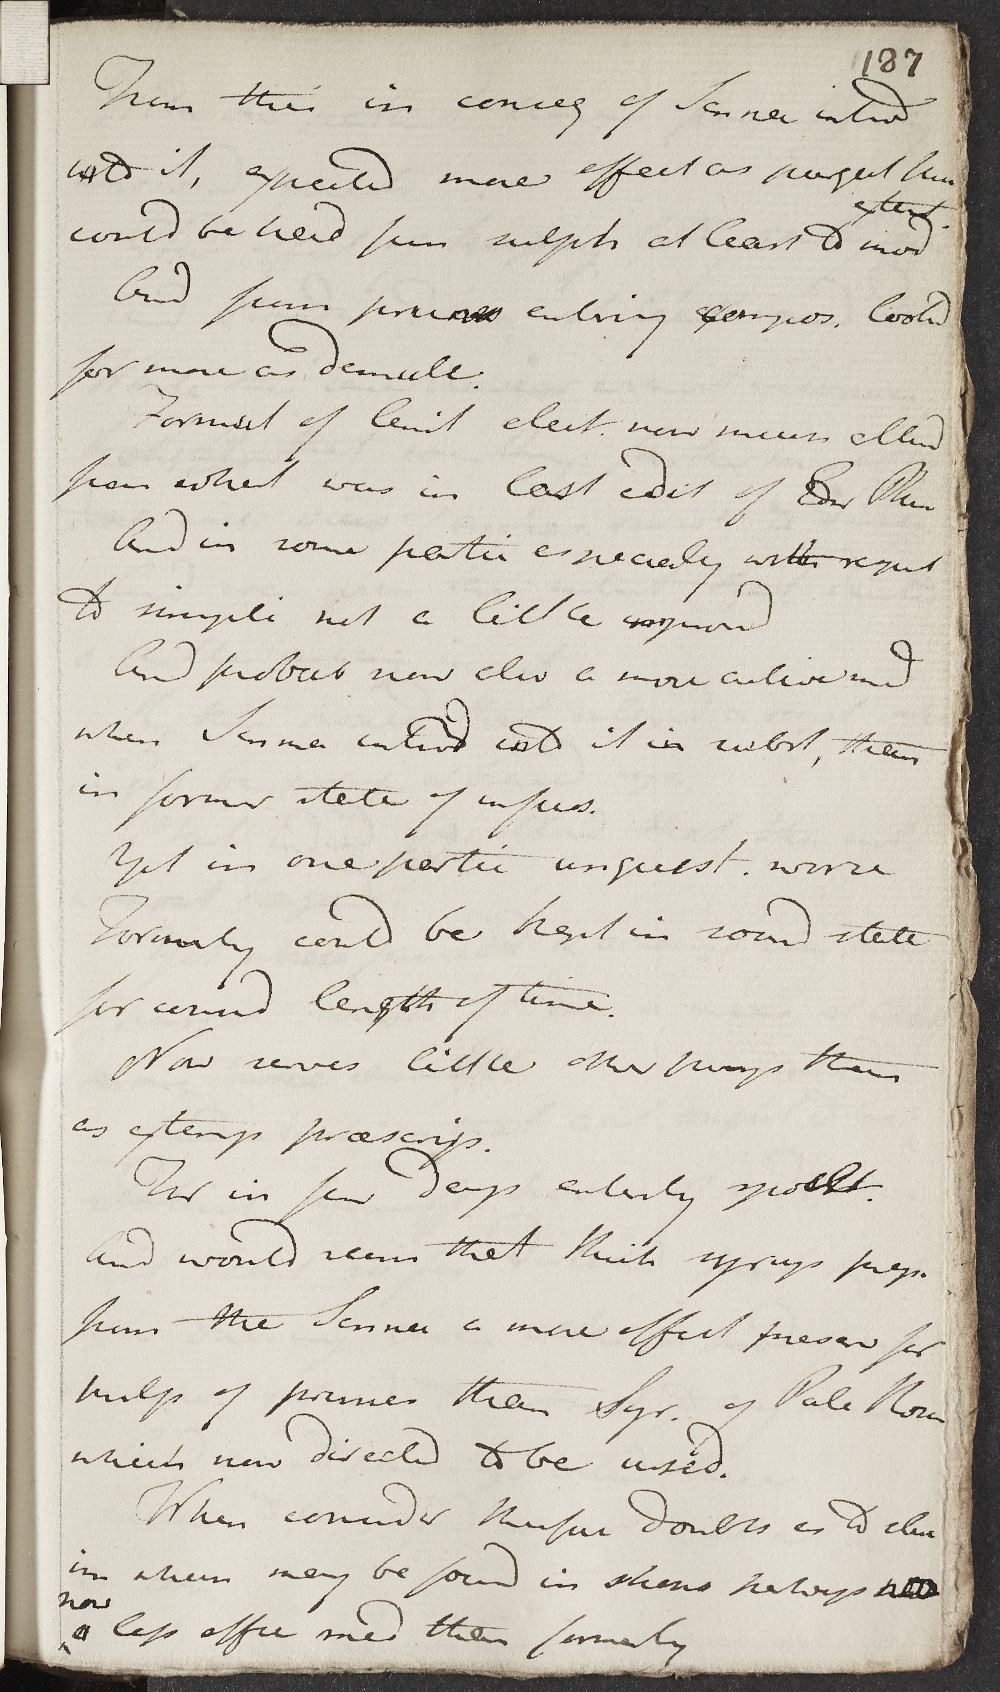 187
From this in conseq of Senna introd
into it, expected more effect as purgat than
extent
could be had from sulph at least to mod
And from prunes entring compos. lookd
for more as demulc.
Formul of lenit elect. now much alterd
from what was in last edit of Edin Phar
And in some partic especialy with regard
to simpli not a little improvd
And probab now also a more active med
when Senna introd into it in subst, than
in former state of infus.
Yet in one partic unquest. worse
Formerly could be kept in sound state
for consid length of time.
Now serves little other purp than
as extemp præscrip.
For in few days entirely spoilt.
And would seem that thick syrup prep.
from the Senna a more effect preserv for
pulp of prunes than Syr. of Pale Roses
which now directed to be used.
When consider therefore doubts as to
in whem may be found in shops perhaps
now
a less effic med than formerly